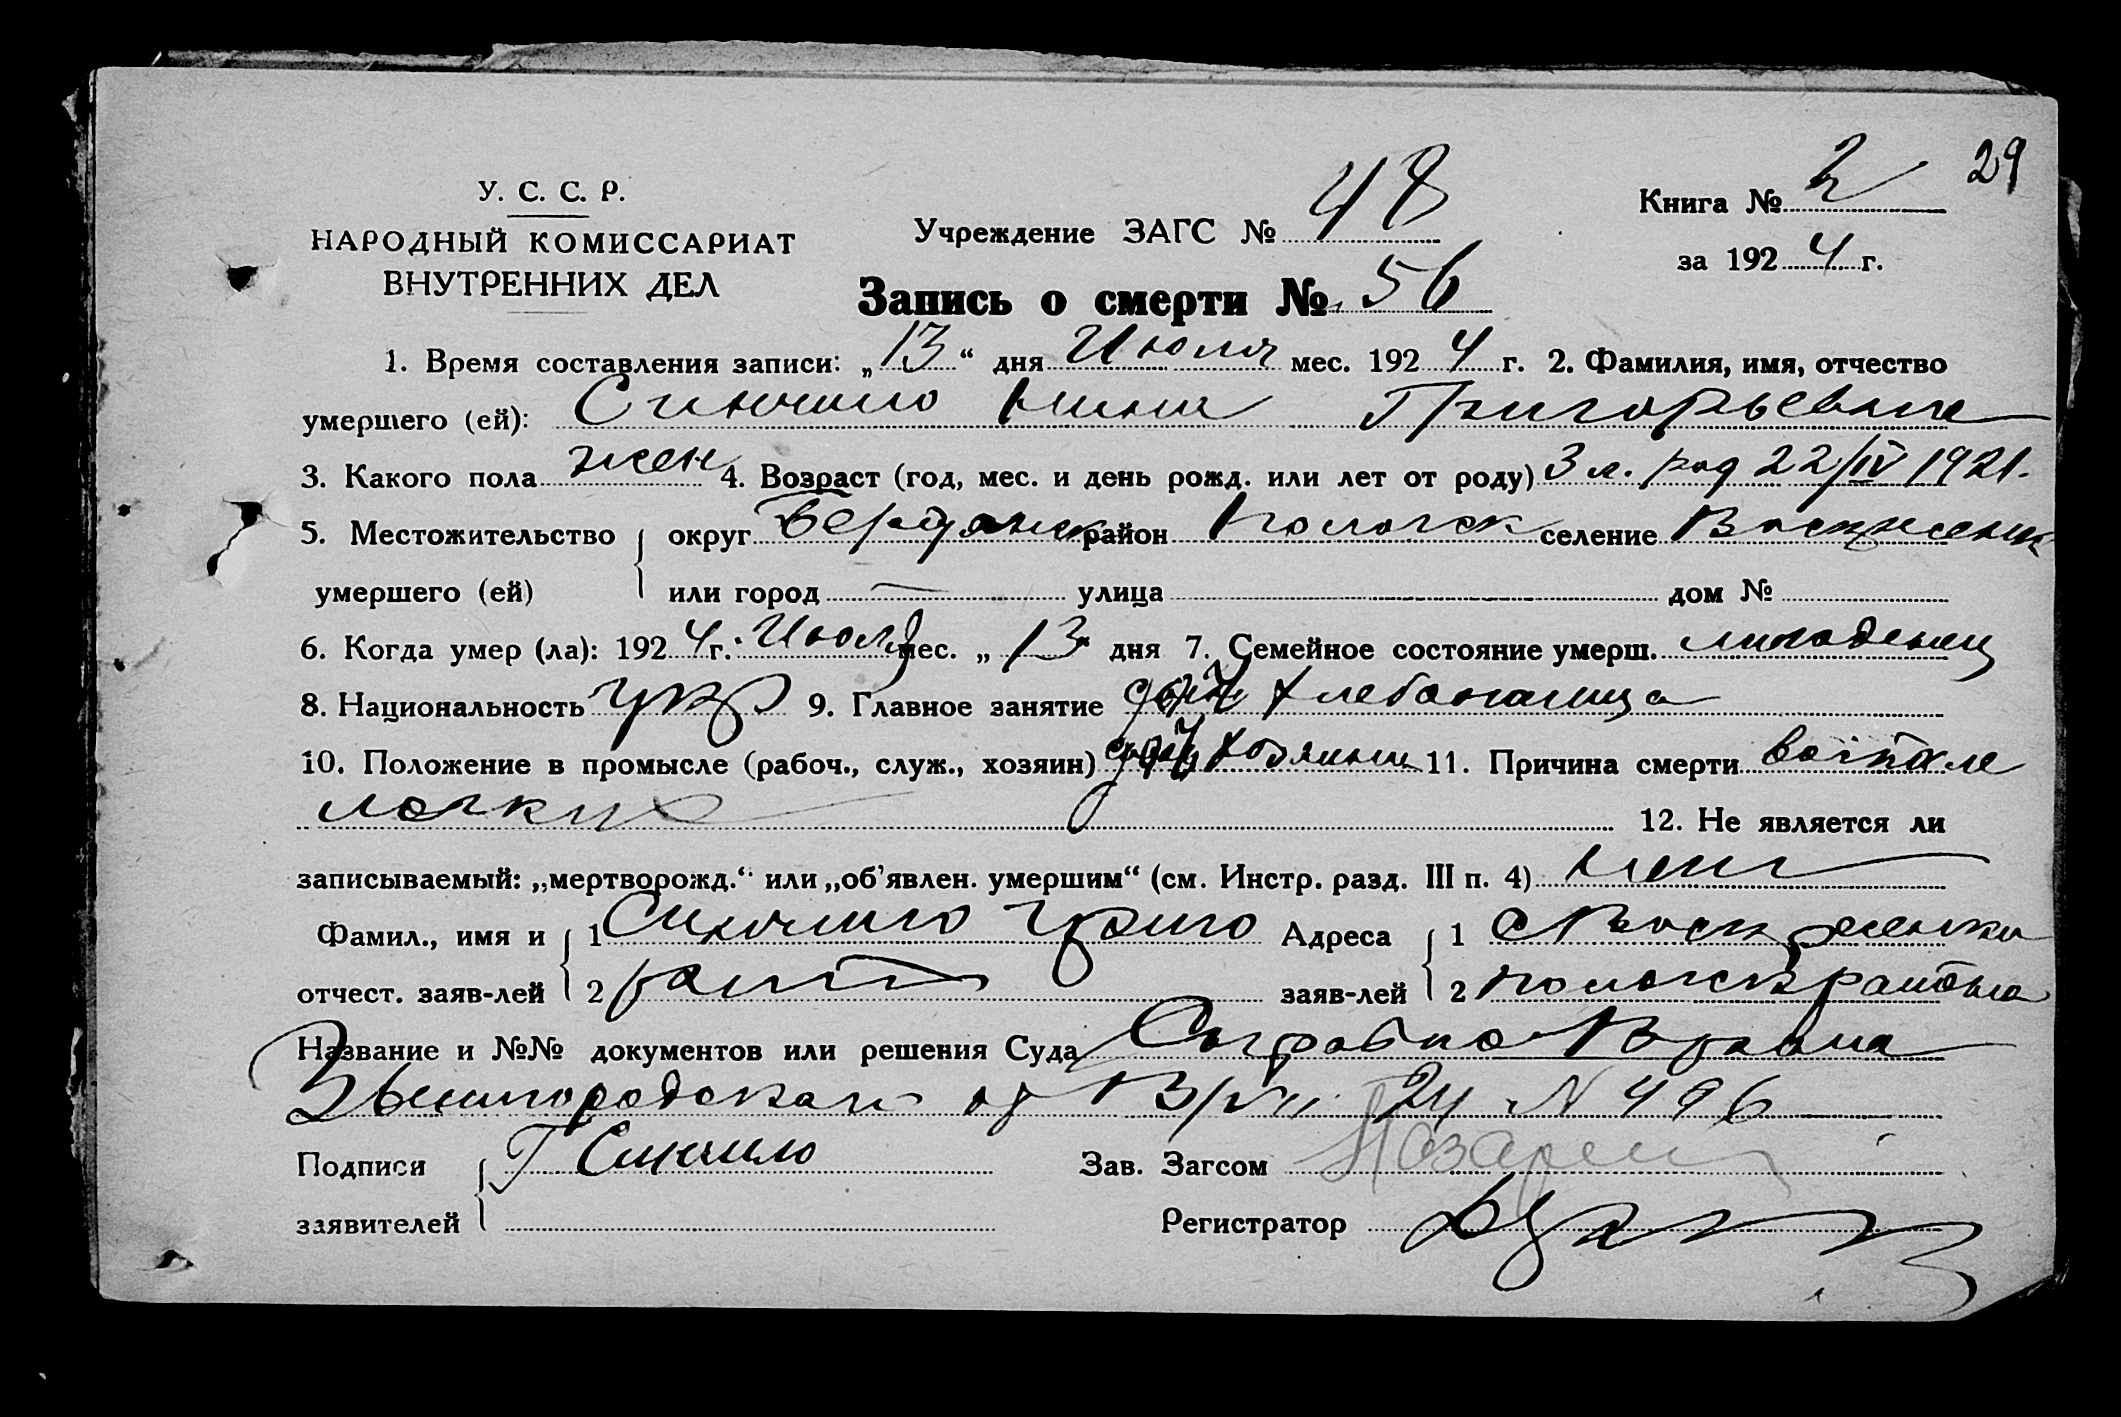 29
У. С. С. Р.
НАРОДНЫЙ КОМИССАРИАТ
ВНУТРЕННИХ ДЕЛ
Учреждение ЗАГС № 48
Книга № 2
за 1924 г.
Запись о смерти № 56
1. Время составления записи: „13“ дня Июля мес. 1924 г. 2. Фамилия, имя, отчество
умершего (ей): Нина Григорьевна
3. Какого пола жен 4. Возраст (год, мес. и день рожд. или лет от роду) 3 л. род 22/IV 1921.
5. Местожительство округ Бердянск район Пологск селение Воскресенк
умершего (ей) или город — улица дом №
6. Когда умер (ла): 1924 г. Июля мес. „13 дня 7. Семейное состояние умерш. младенец
8. Национальность укр 9. Главное занятие дочь хлебопашца
10. Положение в промысле (рабоч., служ., хозяин) дочь хозяина 11. Причина смерти воспале
легких 12. Не является ли
записываемый: „мертворожд.“ или „об'явлен. умершим“ (см. Инстр. разд. III п. 4) нет
Фамил., имя и 1 Григо Адреса 1 с Воскресенка
отчест. заяв-лей 2 заяв-лей 2 Пологск района
Название и №№ документов или решения Суда Справка Врача
от 13/VII 24 N 496
Подписи Г Зав. Загсом
заявителей Регистратор